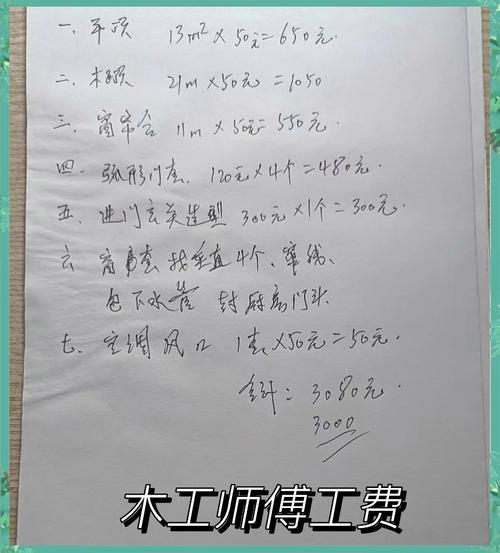 一. 平顶 13m² × 50元 = 650元.
二. 木顶 21m × 50元 = 1050
三. 窗帘合 11m × 50元 = 550元.
四. 弧形门套. 120元 × 4个 = 480元.
五. 进门玄关造型 300元 × 1个 = 300元.
窗套找垂直4个、
包下水管 封厨房门头.
七. 空调风口 1套 × 50元 = 50元.
合计: 3080元.
3000
木工师傅工费